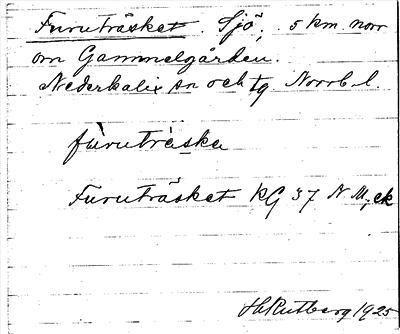 Furuträsket. Sjö, 5 km norr
om Gammelgården.
Nederkalix sn och tg Norrb. l.
furuträske
Furuträsket KG 37 N M, ek
H Rutberg 1925